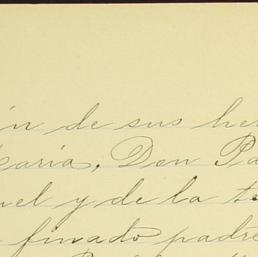 ón de sus her
caria, Don Pa
uel y de la te
finado padre